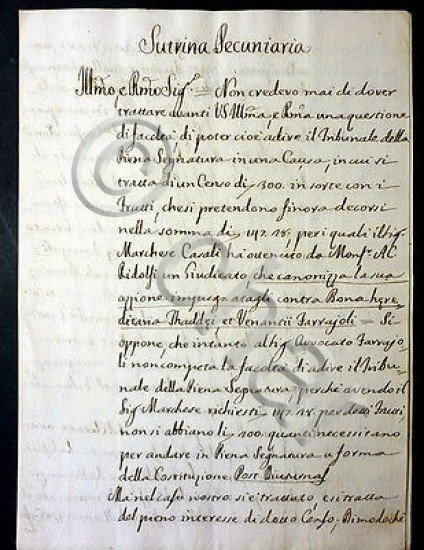 Sutrina Pecuniaria
Illmo, e Rmo Sig.e = Non credevo mai di dover
trattare avanti VS Illma, e Rma una questione
di facoltà, di poter cioè adire il Tribunale della
Piena Segnatura in una Causa, in cui si
tratta di un Censo di 300. in sorte con i
frutti, che si pretendono finora decorsi
nella somma di 192.28, per i quali il Sig
Marchese Casali ha ottenuto da Monsr. Al
Ridolfi un Giudicato che canonizza la sua
azione contra Bona here
ditaria Thaddei et Venantii Farrajoli = Si
oppone, che intanto al Sig Avvocato Farrajo
li non competa la facoltà di adire il Tribu
nale della Piena Segnatura, perchè avendo il
Sig Marchese richiesti 192.28. per detti frutti,
non si abbiano li 300. quanti necessitano
per andare in Piena Segnatura a forma
della Costituzione Post Diuturnas
Ma nel caso nostro si è trattato, e si tratta
del pieno interesse di detto Censo, Dimodochè